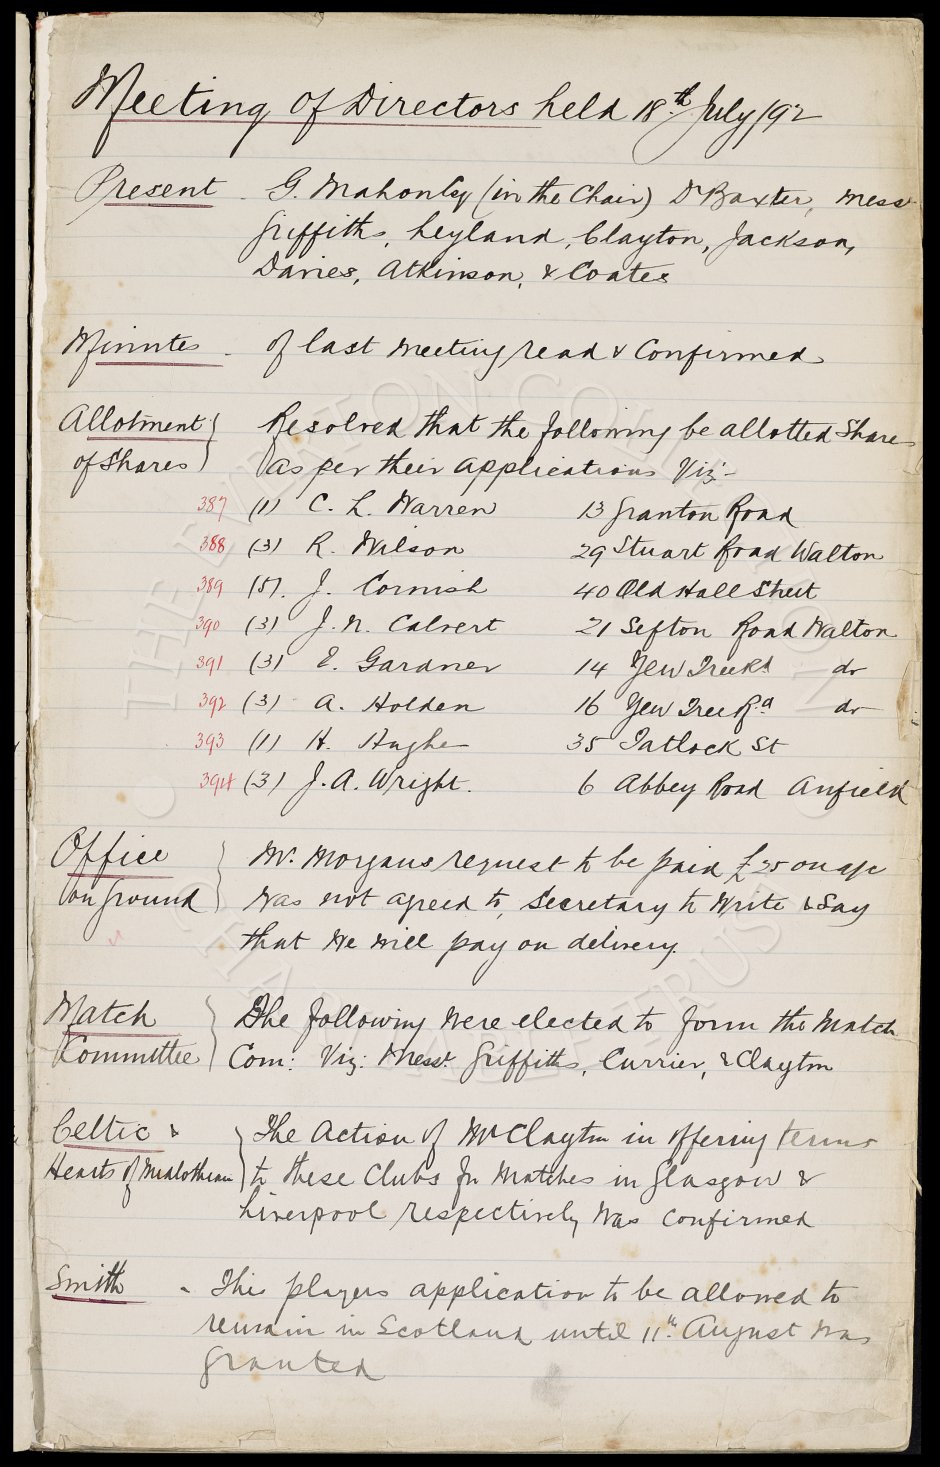 Meeting of Directors held 18th July /92
Present - G. Mahon Esq (in the Chair) Dr Baxter, Messrs
Griffiths, Leyland, Clayton, Jackson,
Davies, Atkinson, & Coates
Minutes - of last meeting read & Confirmed
Allotment Resolved that the following be allotted Shares
of Shares as per their applications Viz:-
387 (1) C. L. Warren 13 Granton Road
388 (3) R. Wilson 29 Stuart Road Walton
389 (5). J. Cornish 40 Old Hall Street
390 (3) J. N. Calvert 21 Sefton Road Walton
391 (3) E. Gardner 14 Yew Tree Rd do
392 (3) A. Holden 16 Yew Tree Rd do
393 (1) H. Hughes 35 Tatlock St
394 (3) J. A. Wright. 6 Abbey Road Anfield
Office Mr. Morgans request to be paid £25 on a/c
on Ground was not agreed to, Secretary to Write & Say
that we will pay on delivery.
Match The following were elected to form the Match
Committee Com: Viz: Messrs. Griffiths, Currier, & Clayton
Celtic & The Action of Mr Clayton in offering terms
Hearts of Midlothian to these Clubs for Matches in Glasgow &
Liverpool respectively was confirmed
Smith - This players application to be allowed to
remain in Scotland until 11th August was
granted
THE EVERTON COLLECTION
CHARITABLE TRUST